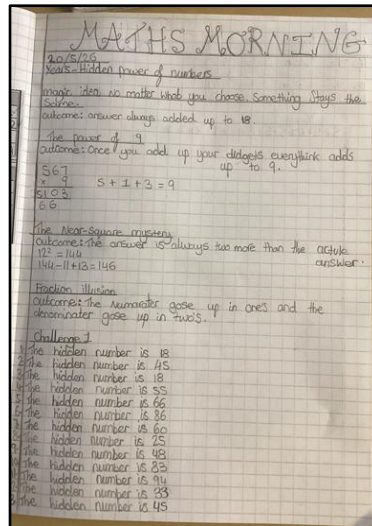 MATHS MORNING
20/5/26
Years-Hidden power of numbers
magic idea. No matter what you choose, Something Stays the
Same.
outcome: answer always added up to 18.
The power of 9
outcome: Once you add up your didgets everythink adds
up to 9.
567
x 9
5103
66
5+1+3=9
The Near-Square mystery
outcome: The answer is always two more than the actule
answer.
12²=144
144-11+13=146
Fraction illusion
outcome: The numarater gose up in one's and the
denominater gose up in two's.
Challenge 1
The hidden number is 18
The hidden number is 45
The hidden number is 18
The hidden number is 55
The hidden number is 66
The hidden number is 86
The hidden number is 60
The hidden number is 25
The hidden number is 48
The hidden number is 83
The hidden number is 94
The hidden number is 33
The hidden number is 45